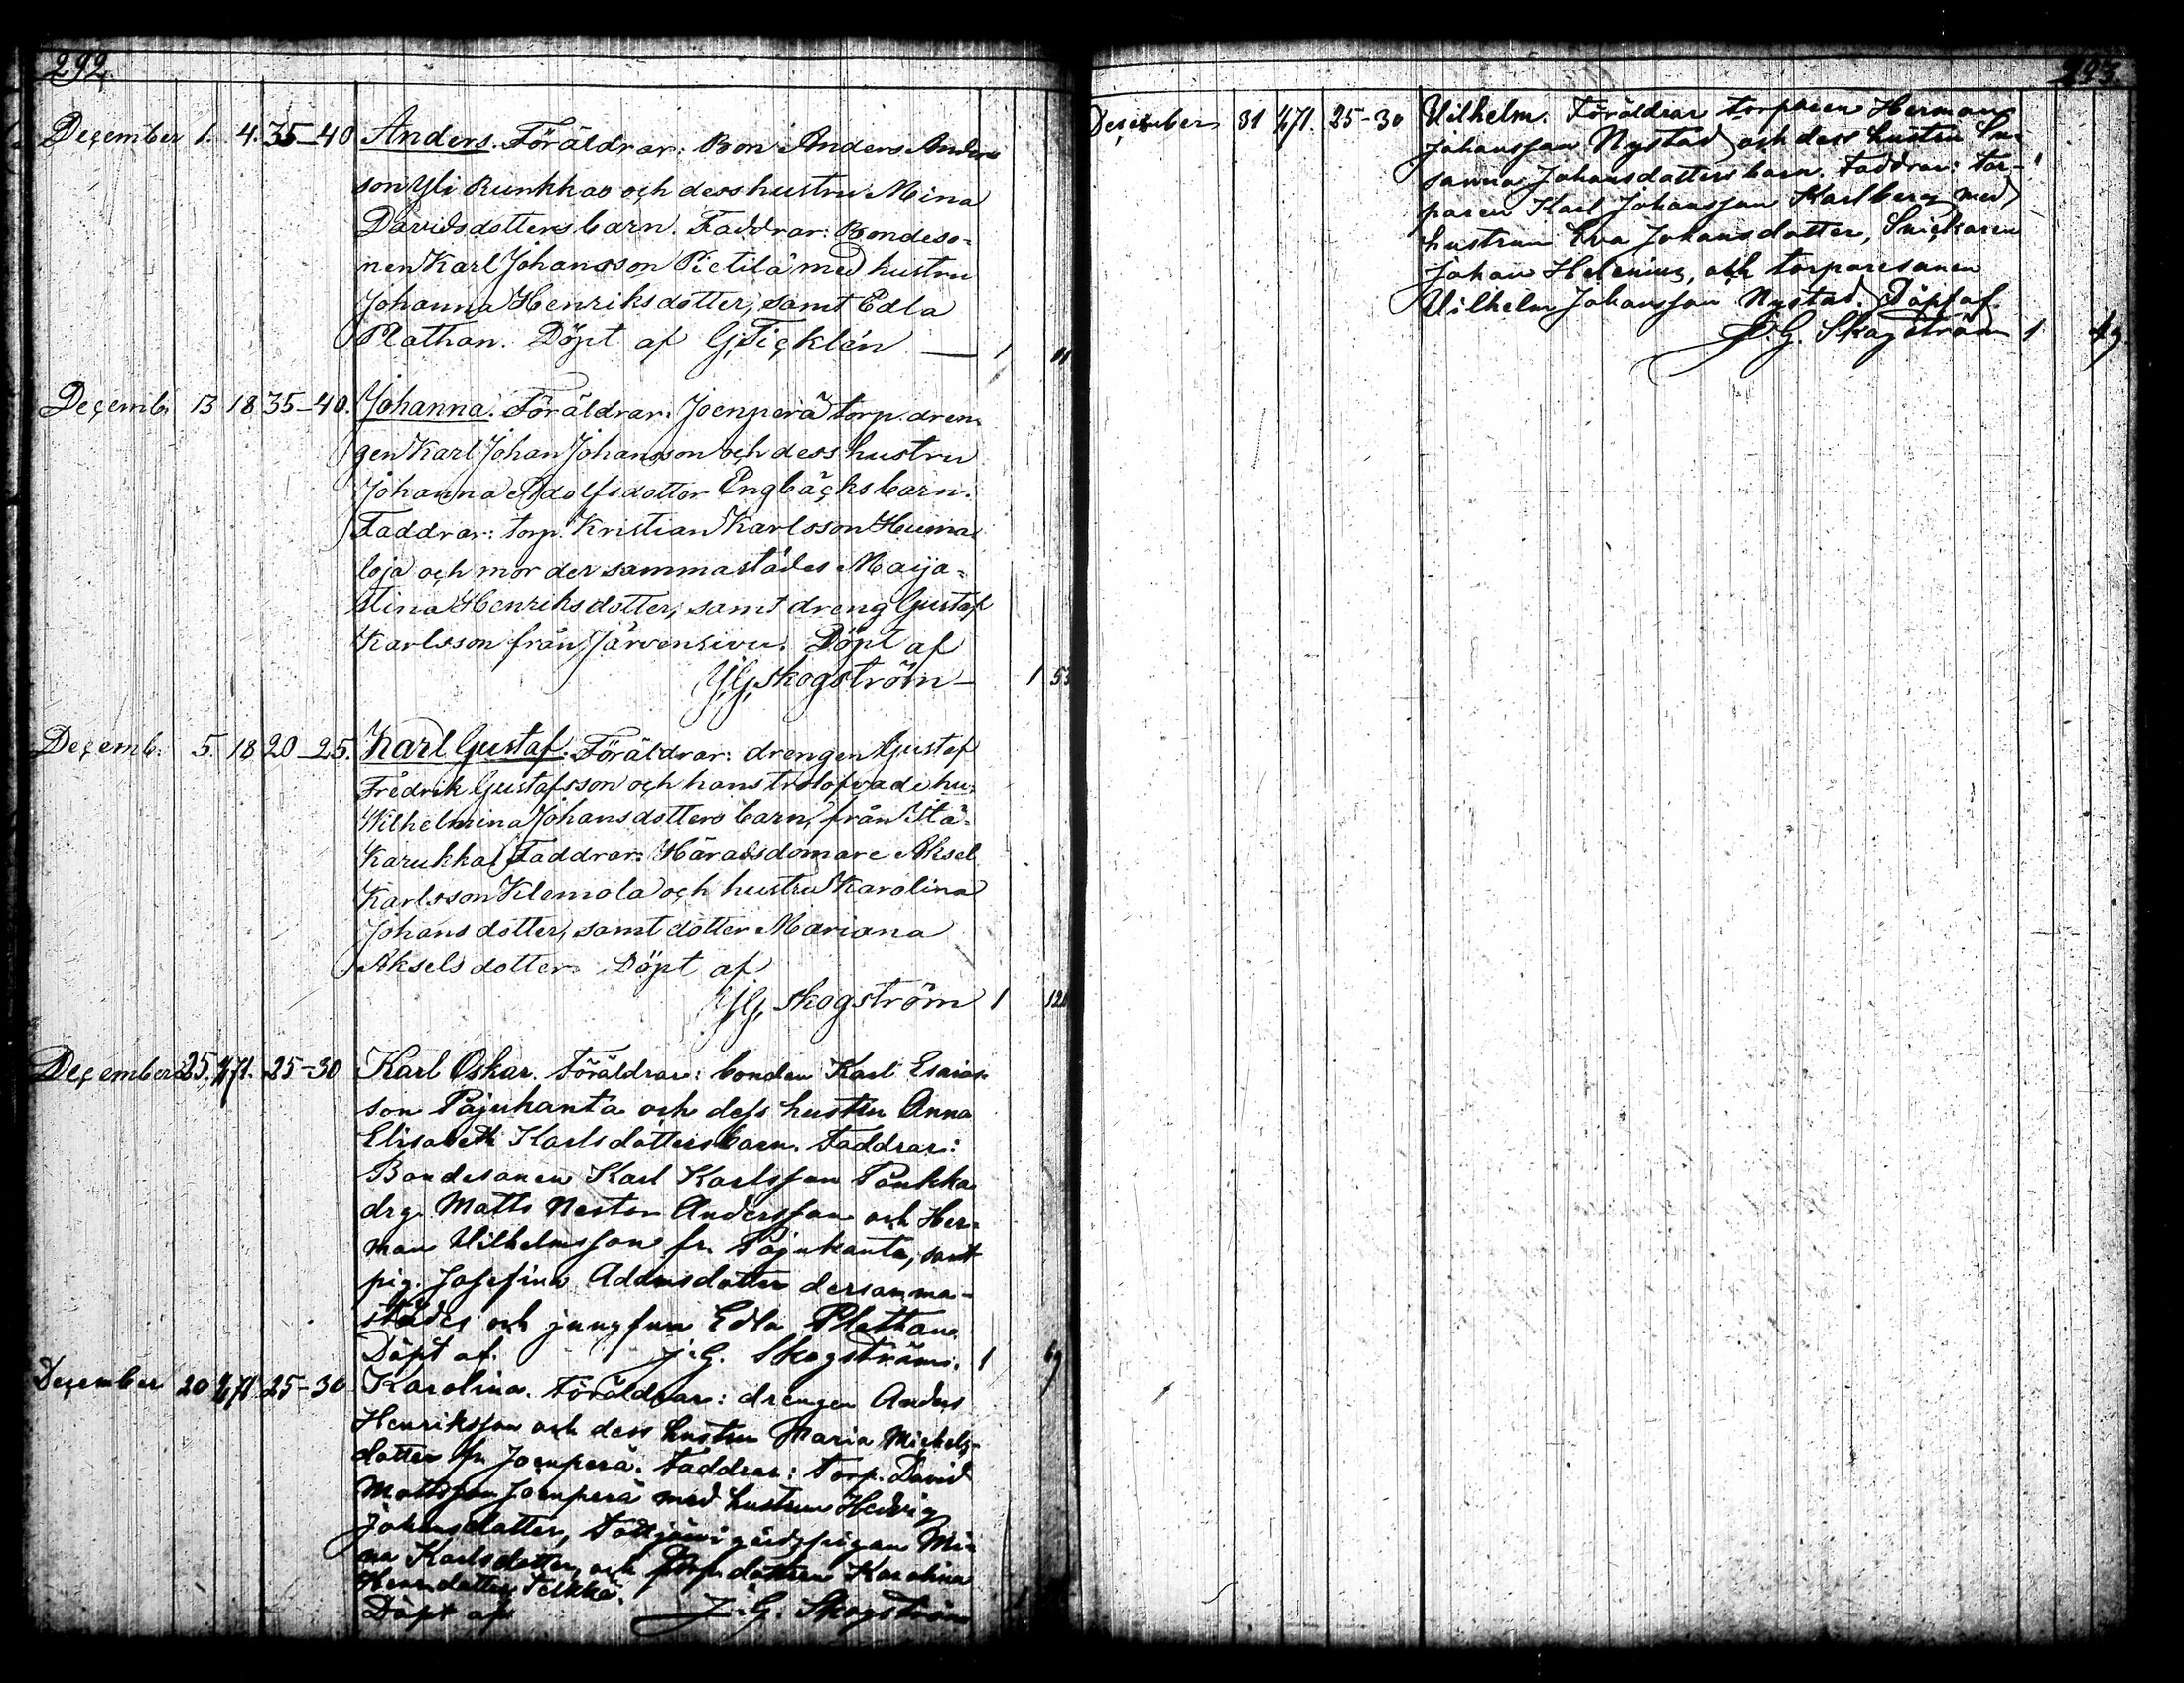 292
December 1. 4. 35–40 Anders. Föräldrar: Bon. Anders Anders
son Yli Runkkao och dess hustru Mina
Davidsdotters barn. Faddrar: Bondeso-
nen Karl Johansson Pietilä med hustru
Johanna Henriksdotter, samt Edla
Plathan. Döpt af G. Ticklén — 1
Decemb. 13 18 35–40. Johanna. Föräldrar: Joenperä torp. dren-
gen Karl Johan Johansson och dess hustru
Johanna Adolfsdotter Engbäcks barn.
Faddrar: torp. Kristian Karlsson Huma-
loja och mor der sammastädes Maija-
Stina Henriksdotter, samt dreng Gustaf
Karlsson från Järvensivu. Döpt af
J.G. Skogström – 1 53
Decemb. 5. 18 20–25. Karl Gustaf. Föräldrar: drengen Gustaf
Fredrik Gustafsson och hans trolofvade hu.
Wilhelmina Johansdotters barn, från Itä-
Karukka. Faddrar: Häradsdomare Aksel
Karlsson Klemola och hustru Karolina
Johansdotter, samt dotter Mariana
Akselsdotter. Döpt af
J.G. Skogström 1 120
December 25. 1/1 71. 25–30 Karl Oskar. Föräldrar: bonden Karl Esaias-
son Pajukanta och dess hustru Anna
Elisabeth Karlsdotters barn. Faddrar:
Bondesonen Karl Karlsson Pänkka
drg. Matts Nestor Andersson och Her-
man Vilhelmsson fr. Pajukanta, samt
pig. Josefina Adamsdotter dersamma-
städes och jungfrun Edla Plathan.
Döpt af. J.G. Skogström. 1 69
December 20 1/1 71 25–30 Karolina. Föräldrar: drengen Anders
Henriksson och dess hustru Maria Michels-
dotter fr. Joenperä. Faddrar: Torp. David
Mattsson Joenperä med hustrun Hedvig
Johansdotter, gårdspigan Mi-
na Karlsdotter, och dottren Karolina
Henr.dotter Telkkä.
Döpt af J.G. Skogström 1
293
December 31 1/1 71. 25–30 Vilhelm. Föräldrar torparen Herman
Johansson Nystad och dess hustru Su-
sanna Johansdotters barn. Faddrar: tor-
paren Karl Johansson Karlberg med
hustrun Eva Johansdotter, Snickaren
Johan Helenius, och torparesonen
Vilhelm Johansson Nystad. Döpt af
J.G. Skogström 1 49